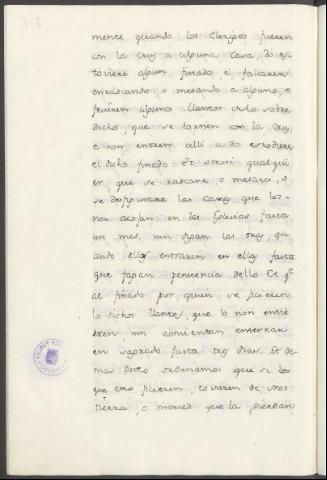 mente quando los Clerigos fueren
con la Cruz a alguna Casa, do es-
toviere algun finado, è fallaren
rascando, o mesando a alguno, o
ficieren algunos llantos delo sobre
dicho que se tornen con la Cruz,
e non entren alli a do estodiere
el dicho finado. Et otrosi qualqui-
er, que se rascare, o mesare, o
se desfigurare las Caras que los
non acojan en las Iglesias fasta
un mes, nin digan las oras qu-
ando ellos entraren en ellas fasta
que fagan penitencia dello. Et q.
al finado por quien se ficieren
los dichos llantos, que lo non entie-
rren, nin comientan enterrar
en sagrado fasta tres dias. Et de
mas desto ordenamos que si los
que esto ficieren, tovieren de nos
tierra, o merced que la pierdan